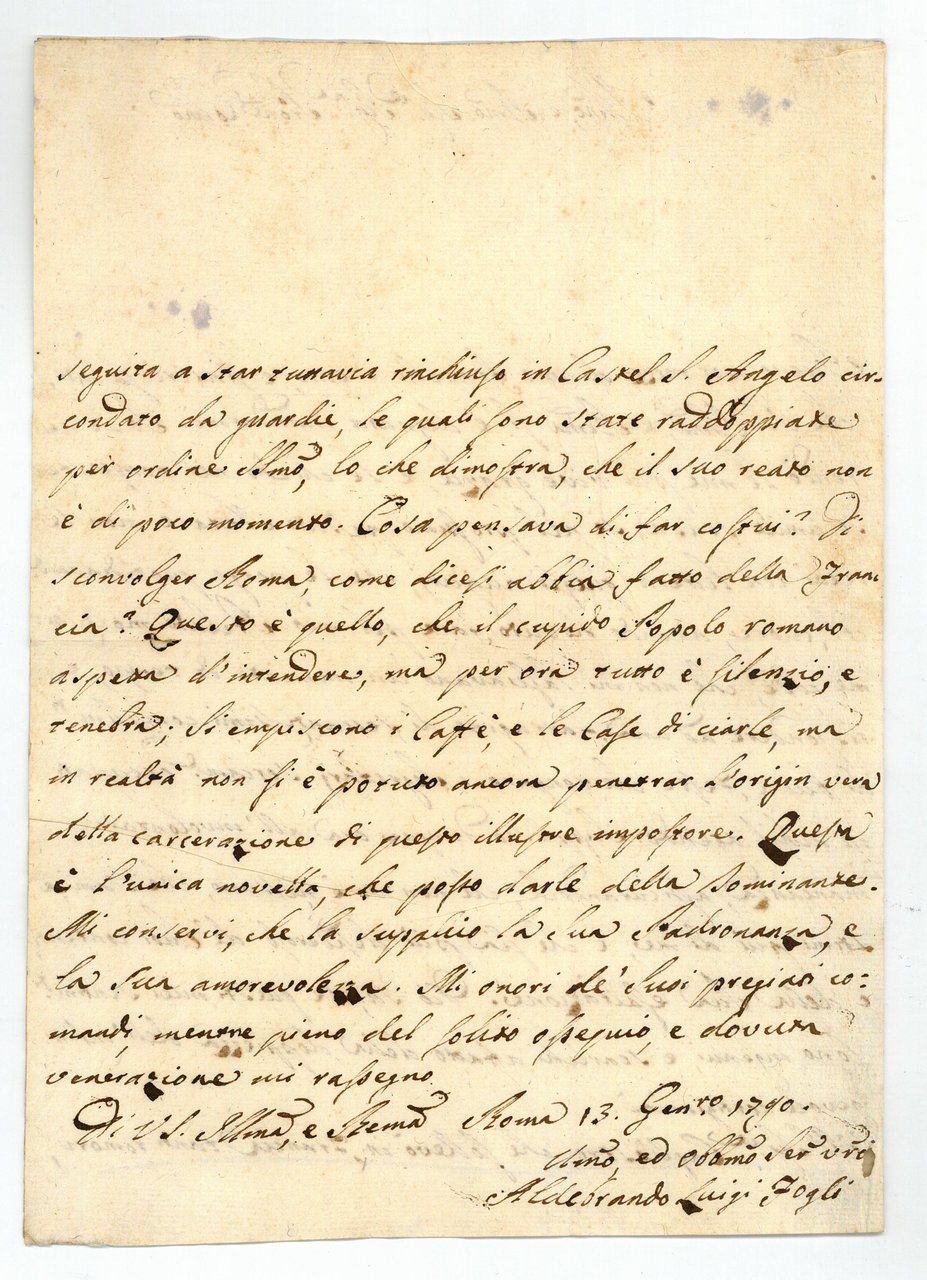 seguita a star tuttavia rinchiuso in Castel S. Angelo cir-
condato da guardie, le quali sono state raddoppiate
per ordine Smo, lo che dimostra, che il suo reato non
è di poco momento. Cosa pensava di far costui? Di
sconvolger Roma, come dicesi abbia fatto della Fran-
cia? Questo è quello, che il cupido Popolo romano
aspetta d'intendere, ma per ora tutto è silenzio, e
tenebra; Si empiscono i Caffè, e le Case di ciarle, ma
in realtà non si è potuto ancora penetrar l'origin vera
della carcerazione di questo illustre impostore. Questa
è l'unica novella, che posso darle della Dominante.
Mi conservi, che la supplico la Sua Padronanza, e
la sua amorevolezza. Mi onori de' Suoi pregiati co=
mandi, mentre pieno del solito ossequio, e dovuta
venerazione mi rassegno
Di V S. Illma, e Rema Roma 13. Genro 1790.
dmo, ed obbmo Serv
Aldebrando Luigi Fogli